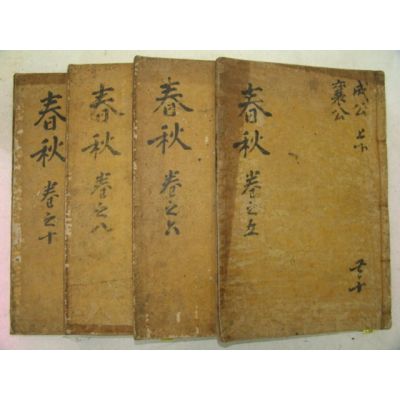 成公 上下
襄公
春秋 卷之五
春秋 卷之六
春秋 卷之八
春秋 卷之十